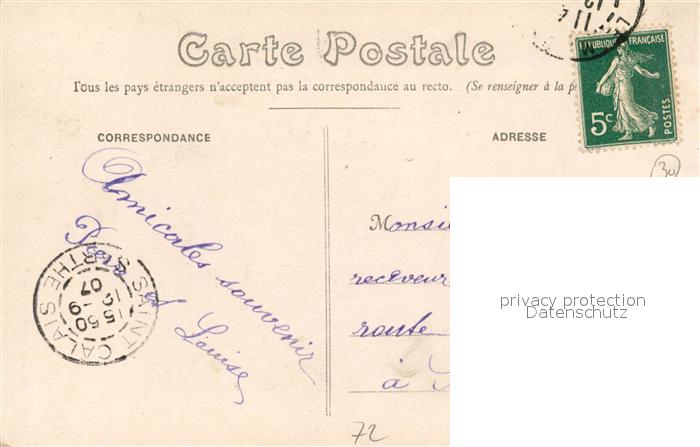 Carte Postale
Tous les pays étrangers n'acceptent pas la correspondance au recto. (Se renseigner à la
CORRESPONDANCE
ADRESSE
RÉPUBLIQUE FRANÇAISE
5c
POSTES
30
Amicales souvenir
et Louise
Monsie
receveur
route
à
SAINT CALAIS
SARTHE
15 50
9
07
72
privacy protection
Datenschutz